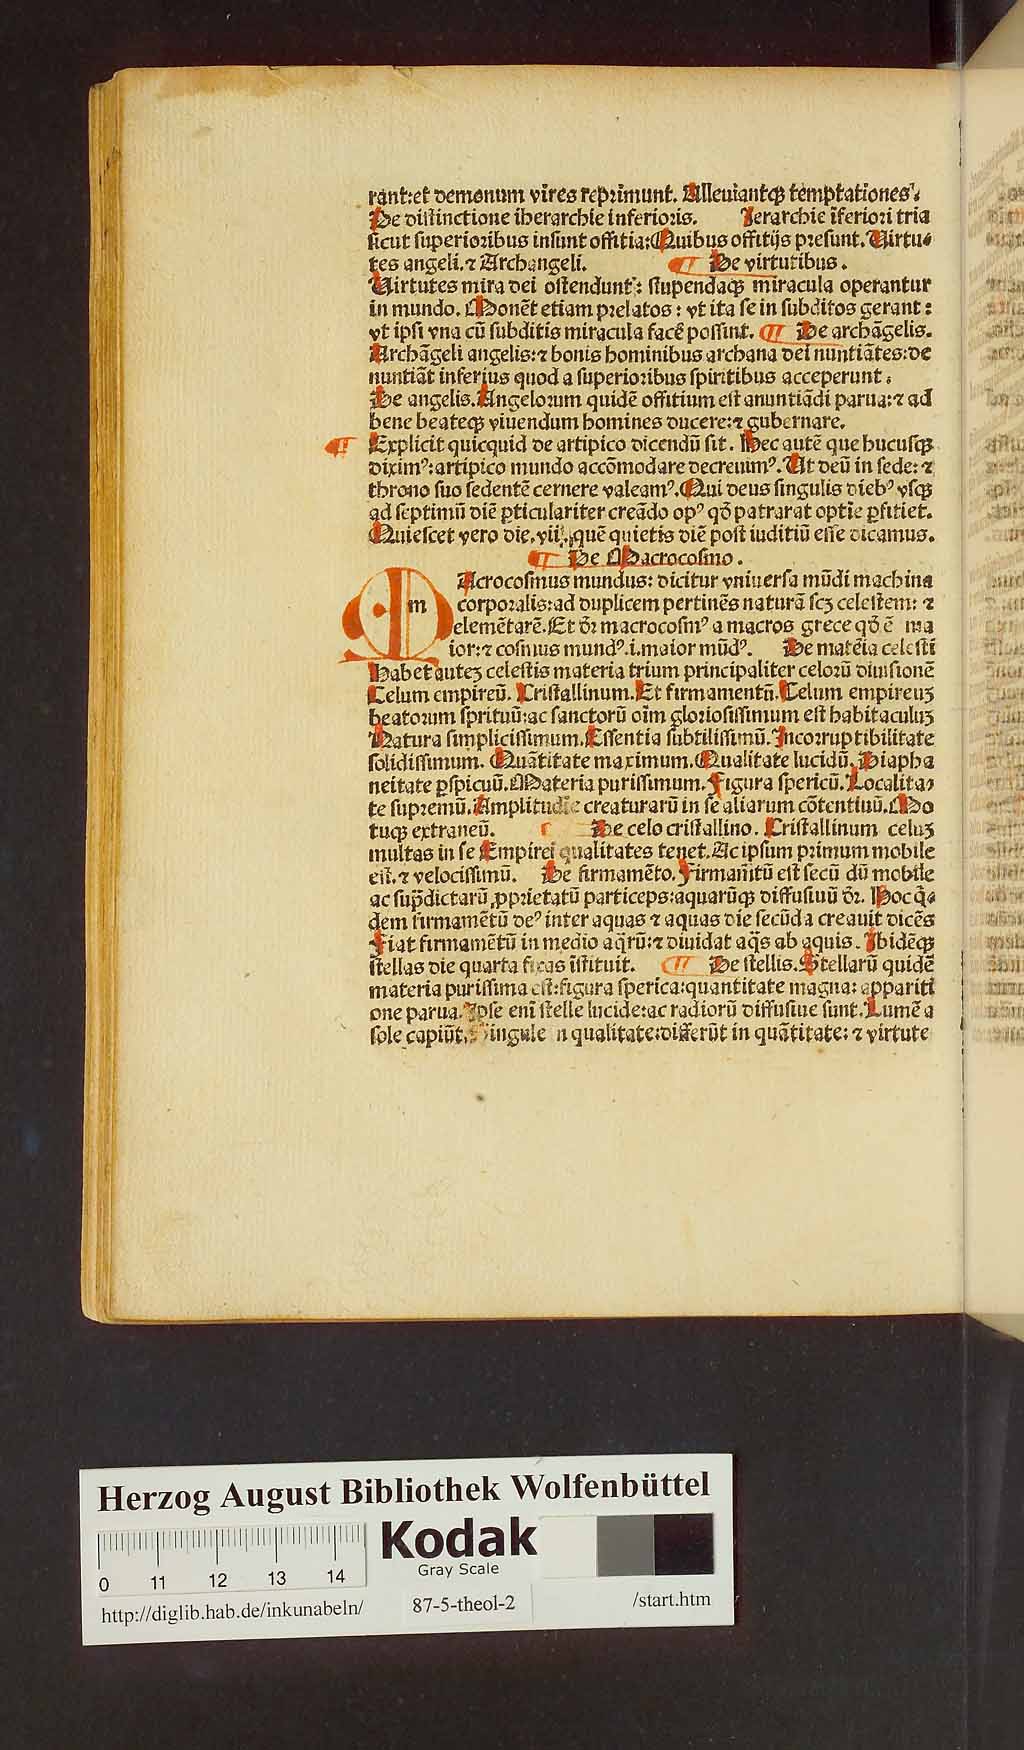 rant:et demonum vires reprimunt. Alleuiantqꝫ temptationes.
De distinctione iherarchie inferioris. Ierarchie ĩferiori tria
sicut superioribus insunt offitia: Quibus offitijs presunt. Uirtu-
tes angeli. ⁊ Archangeli. ¶ De virtutibus.
Uirtutes mira dei ostendunt: stupendaqꝫ miracula operantur
in mundo. Monẽt etiam prelatos: vt ita se in subditos gerant:
vt ipsi vna cũ subditis miracula facẽ possunt. ¶ De archãgelis.
Archãgeli angelis: ⁊ bonis hominibus archana dei nuntiãtes: de
nuntiãt inferius quod a superioribus spiritibus acceperunt.
De angelis. Angelorum quidẽ offitium est anuntiãdi parua: ⁊ ad
bene beateqꝫ viuendum homines ducere: ⁊ gubernare.
¶ Explicit quicquid de artipico dicendũ sit. Hec autẽ que hucusqꝫ
diximꝰ: artipico mundo accõmodare decreuimꝰ. Ut deũ in sede: ⁊
throno suo sedentẽ cernere valeamꝰ. Qui deus singulis diebꝰ vsqꝫ
ad septimũ diẽ ꝑticulariter creãdo opꝰ qđ patrarat optie ꝑfitiet.
Quiescet vero die. vii. quẽ quietis diẽ post iuditiũ esse dicamus.
¶ De Macrocosmo.
m Acrocosmus mundus: dicitur vniuersa mũdi machina
corporalis: ad duplicem pertinẽs naturã scꝫ celestem: ⁊
elemẽtarẽ. Et dr̃ macrocosmꝰ a macros grece qđ ẽ ma
ior: ⁊ cosmus mundꝰ. i. maior mũdꝰ. De matẽia celesti
Habet auteꝫ celestis materia trium principaliter celorũ diuisionẽ
Celum empireũ. Cristallinum. Et firmamentũ. Celum empireuꝫ
beatorum sprituũ: ac sanctorũ oĩm gloriosissimum est habitaculuꝫ
Natura simplicissimum. Essentia subtilissimũ. Incorruptibilitate
solidissimum. Quãtitate maximum. Qualitate lucidũ. Diapha
neitate ꝑspicuũ. Materia purissimum. Figura spericũ. Localita-
te supremũ. Amplitudĩe creaturarũ in se aliarum cõtentiuũ. Mo
tuqꝫ extraneũ. De celo cristallino. Cristallinum celuꝫ
multas in se Empirei qualitates tenet. Ac ipsum primum mobile
est. ⁊ velocissimũ. De firmamẽto. Firmam̃tũ est secũ dũ mobile
ac sup̃dictarũ ꝓprietatũ particeps: aquarũqꝫ diffusiuũ dr̃. Hoc q̃
dem firmamẽtũ deꝰ inter aquas ⁊ aquas die secũda creauit dicẽs
Fiat firmamẽtũ in medio aq̃rũ: ⁊ diuidat aq̃s ab aquis. Ibidẽqꝫ
stellas die quarta fixas ĩstituit. ¶ De stellis. Stellarũ quidẽ
materia purissima est: figura sperica: quantitate magna: appariti
one parua. Ipse enĩ stelle lucide: ac radiorũ diffusiue sunt. Lumẽ a
sole capiũt. Singule in qualitate: differũt in quãtitate: ⁊ virtute
Herzog August Bibliothek Wolfenbüttel
Kodak
Gray Scale
0 11 12 13 14
http://diglib.hab.de/inkunabeln/ 87-5-theol-2 /start.htm